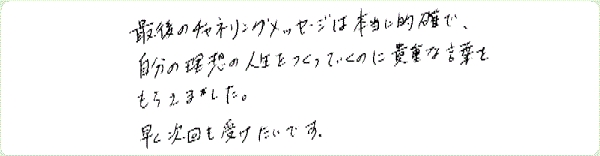 最後のチャネリングメッセージは本当に的確で、
自分の理想の人生をつくっていくのに貴重な言葉を
もらえました。
早く次回も受けたいです。